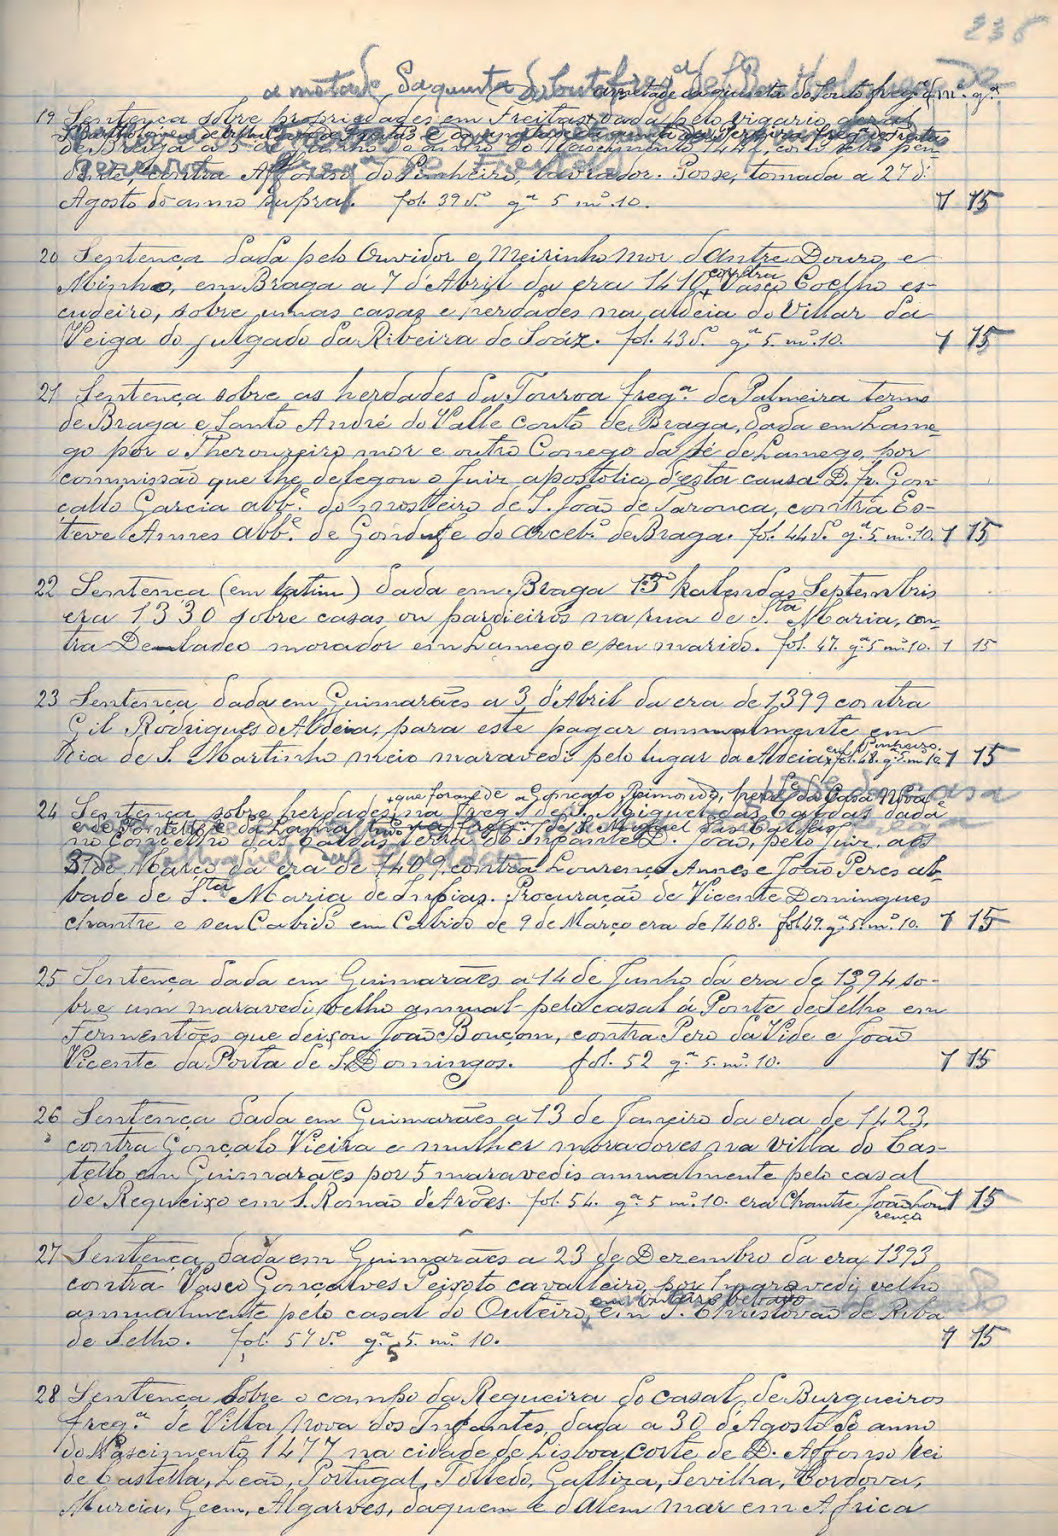 238
a metade da quinta do Souto freg.ª de S. Bartholomeu de
19 Sentença sobre propriedades em Freitas dada pelo vigario geral
de Braga a 5 de Junho do anno do Nascimento com sello pen-
dente contra Affonso do Pinheiro, lavrador. Posse, tomada a 27 d'
Agosto do anno supra. fol. 39 v.º g.ª 5 m.º 10. 1 15
20 Sentença dada pelo Ouvidor e Meirinho Mor d'Antre Douro e
Minho, em Braga a 7 d'Abril da era 1410 contra Vasco Coelho es-
cudeiro, sobre umas casas e herdades na aldeia do Villar da
Veiga do julgado da Ribeira de Soáz. fol. 43 v.º g.ª 5. m.º 10. 1 15
21 Sentença sobre as herdades da Touroa freg.ª de Palmeira termo
de Braga e Santo André do Valle couto de Braga, dada em Lame-
go por o Thezoureiro mor e outro Conego da Sé de Lamego, por
commissão que lhe delegou o Juiz apostolico d'esta causa D. Fr. Gon-
çallo Garcia abb.e do mosteiro de S. João de Tarouca, contra Es-
teve Annes abb.e de Gondufe do arceb.º de Braga. fol. 44 v.º g.ª 5. m.º 10. 1 15
22 Sentença (em latim) dada em Braga 13º kalendas Septembris
era 1330 sobre casas ou pardieiros na rua de S.ta Maria, con-
tra morador em Lamego e seu marido. fol. 47. g.ª 5 m.º 10. 1 15
23 Sentença dada em Guimarães a 3 d'Abril da era de 1399 contra
Gil Rodrigues d'Aldeia, para este pagar annualmente em
dia de S. Martinho meio maravedi pelo lugar da Aldeia em Pinheiro. fol. 48. g.ª 5 m.º 10 1 15
+ que foram de Gonçalo Raimondo, her.º da Casa Nova e
24 Sentença sobre herdades na freg.ª de S. Miguel das Caldas dada
no concelho das Caldas terra do Infante D. João, pelo Juiz, aos
31 de Março da era de 1409 contra Lourenço Annes e João Peres ab-
bade de S.ta Maria de Infias. Procuração de Vicente Domingues
chantre e seu Cabido em Cabido de 9 de Março era de 1408. fol. 49. g.ª 5. m.º 10. 1 15
25 Sentença dada em Guimarães a 14 de Junho da era de 1394 so-
bre um maravedi velho annual pelo casal á Ponte de Selho em
Fermentões que deixou João Bouçom, contra Pero da Vide e João
Vicente da Porta de S. Domingos. fol. 52 g.ª 5. m.º 10. 1 15
26 Sentença dada em Guimarães a 13 de Janeiro da era de 1423,
contra Gonçalo Vieira e mulher moradores na villa do Cas-
tello em Guimarães por 5 maravedis annualmente pelo casal
de Requeixo em S. Romão d'Arões. fol. 54. g.ª 5 m.º 10. era Chantre João Lou- 1 15
renço
27 Sentença dada em Guimarães a 23 de Dezembro da era 1393
contra Vasco Gonçalves Peixoto cavalleiro, por 1 maravedi velho
annualmente pelo casal do Outeiro, em S. Christovão de Riba
de Selho. fol. 57 v.º g.ª 5. m.º 10. 1 15
28 Sentença sobre o campo da Regueira do casal de Burgueiros
freg.ª de Villa Nova dos Infantes, dada a 30 d'Agosto do anno
do Nascimento 1477 na cidade de Lisboa, corte de D. Affonso Rei
de Castella, Leão, Portugal, Tolledo, Galliza, Sevilha, Cordova,
Murcia, Geem, Algarves, daquem e dalem mar em Africa